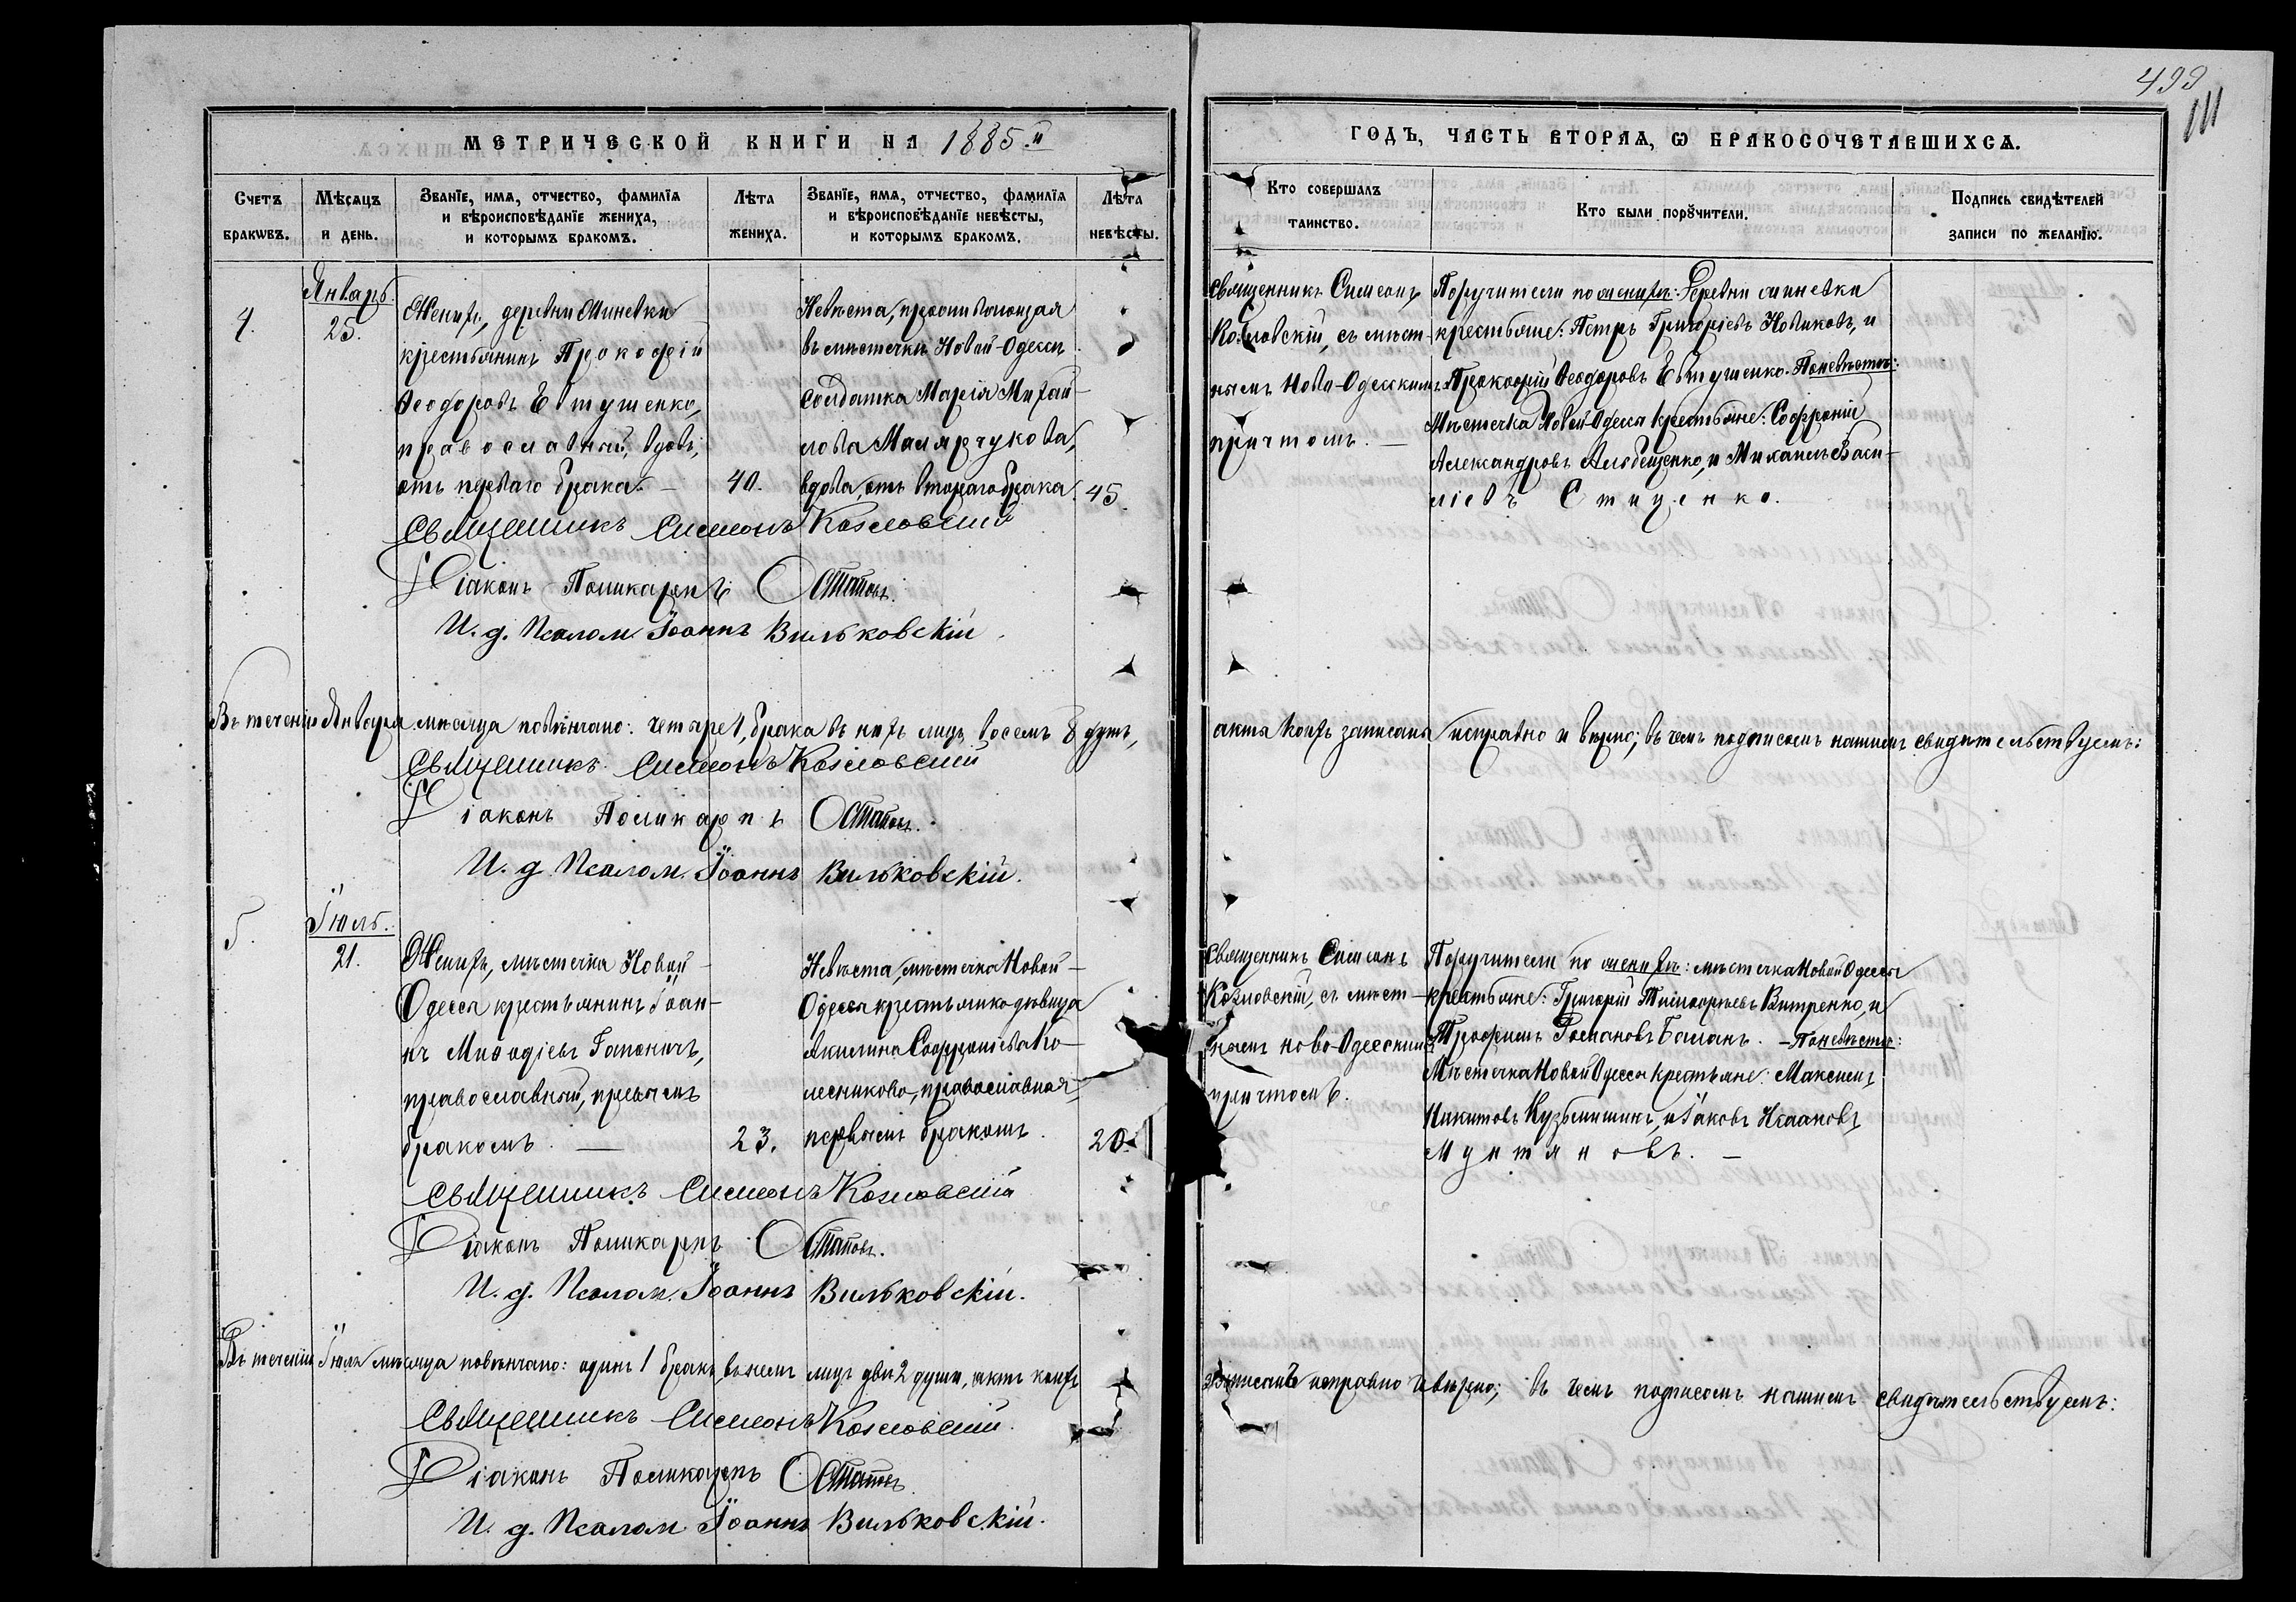 499
111
МЕТРИЧЕСКОЙ КНИГИ НА 1885.й
Счетъ бракѡвъ.
Мѣсяцъ и день.
Званїе, имѧ, отчество, фамилїѧ
и вѣроисповѣданїе жениха,
и которымъ бракомъ.
Лѣта жениха.
Званїе, имѧ, отчество, фамилїѧ
и вѣроисповѣданїе невѣсты,
и которымъ бракомъ.
Лѣта невѣсты.
4.
Январь.
25.
Женихъ, деревни Миневки
крестьянинъ Прокофій
Ѳеодоровъ Евтушенко,
православный, вдовъ,
отъ перваго брака. —
40.
Невѣста, проживающая
въ мѣстечкѣ Новой-Одессѣ
солдатка Марія Михай-
лова Малярчукова,
вдова, отъ втораго брака.
45.
Священникъ Симеонъ Козловскій
Діаконъ Поликарпъ Остаповъ.
И. д. Псалом. Іоаннъ Вильковскій.
Въ теченіи Января мѣсяца повѣнчано: четыре 4, брака въ нихъ лицъ восемь 8 душъ,
Священникъ Симеонъ Козловскій
Діаконъ Поликарпъ Остаповъ.
И. д. Псалом. Іоаннъ Вильковскій.
5.
Іюль.
21.
Женихъ, мѣстечка Новой-
Одесса крестьянинъ Іоан-
нъ Меѳодіевъ Гапоничъ,
православный, первымъ
бракомъ. —
23.
Невѣста, мѣстечка Новой-
Одесса крестьянка девица
Акилина Софроніева Ко-
лесникова, православная,
первымъ бракомъ.
20.
Священникъ Симеонъ Козловскій
Діаконъ Поликарпъ Остаповъ.
И. д. Псалом. Іоаннъ Вильковскій.
Въ теченіи Іюля мѣсяца повѣнчано: одинъ 1 бракъ, въ немъ лицъ двѣ 2 души, актъ коихъ
Священникъ Симеонъ Козловскій.
Діаконъ Поликарпъ Остаповъ.
И. д. Псалом. Іоаннъ Вильковскій.
ГОДЪ, ЧАСТЬ ВТОРАѦ, Ѡ БРАКОСОЧЕТАВШИХСѦ.
Кто совершалъ таинство.
Кто были порꙋчители.
Подпись свидѣтелей
записи по желанїю.
Священникъ Симеонъ
Козловскій, съ мѣст-
нымъ Ново-Одесскимъ
причтомъ. —
Поручители по женихѣ: Деревни Миневки
крестьяне: Петръ Григоріевъ Новиковъ, и
Прокофій Ѳеодоровъ Евтушенко. По невѣстѣ:
Мѣстечка Новой-Одесса крестьяне: Софроній
Александровъ, и Михаилъ Васи-
ліевъ Стиценко.
акта коихъ записаны исправно и вѣрно; въ чемъ подписомъ нашимъ свидѣтельствуемъ:
Священникъ Симеонъ
Козловскій, съ мѣст-
нымъ Ново-Одесскимъ
причтомъ.
Поручители по женихѣ: мѣстечка Новой Одесса
крестьяне: Григорій Тимоѳеевъ Витренко, и
Трофимъ Романовъ Баланъ. — По невѣстѣ:
Мѣстечка Новой Одесса крестьяне: Максимъ
Никитовъ Кузьмишинъ, и Іаковъ Исааковъ
Мунтяновъ. —
записанъ исправно и вѣрно; въ чемъ подписомъ нашимъ свидѣтельствуемъ: